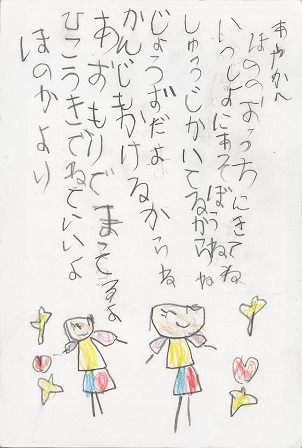 あやかへ
ほののおうちにきてね
いっしょにあそぼうね
しゅうじかいてるからね
じょうずだよ
かんじもかけるからね
あおもりでまってるよ
ひこうきでねていいよ
ほのかより